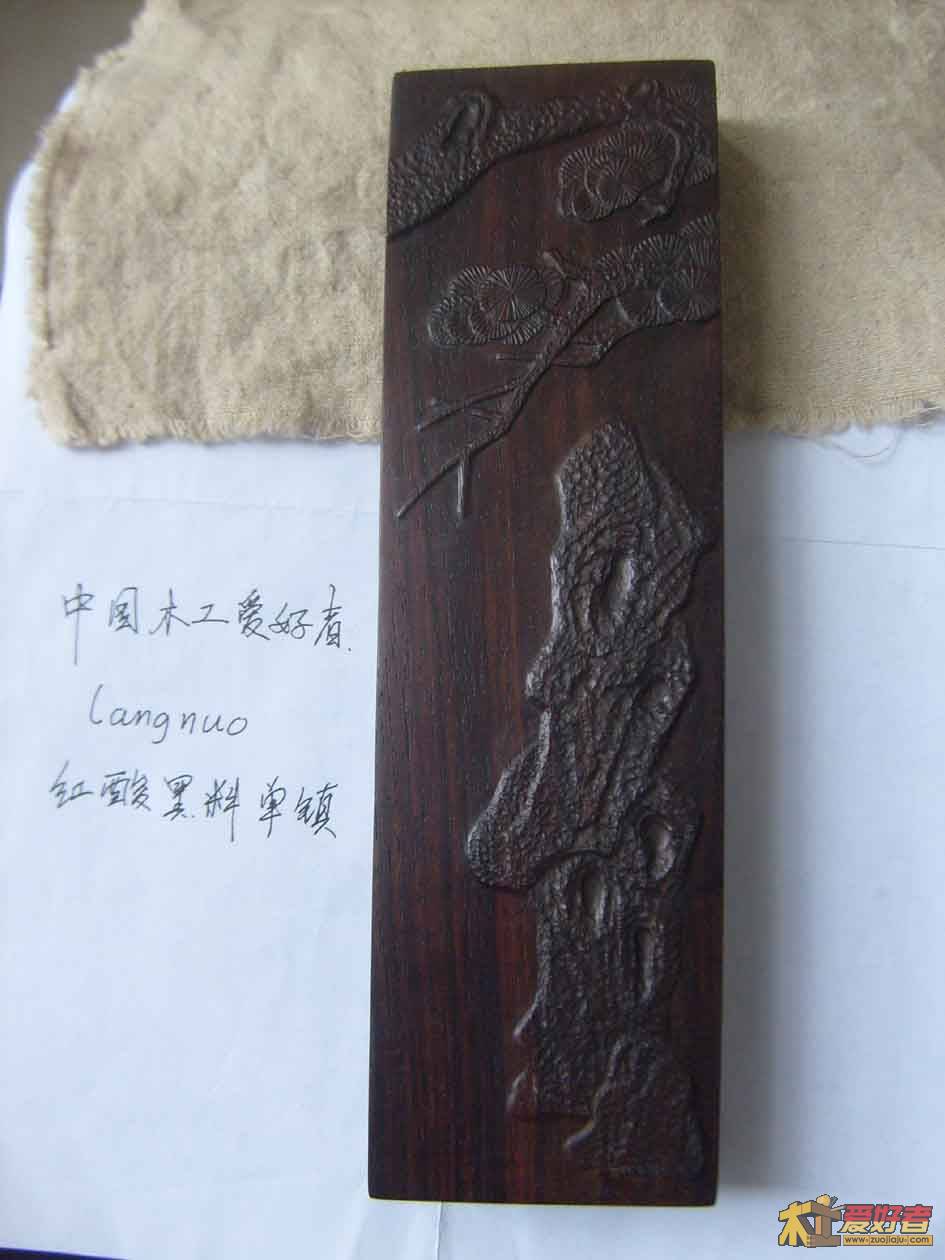 中国木工爱好者.
langnuo
红酸黑料单镇
木工爱好者
www.zuojiaju.com